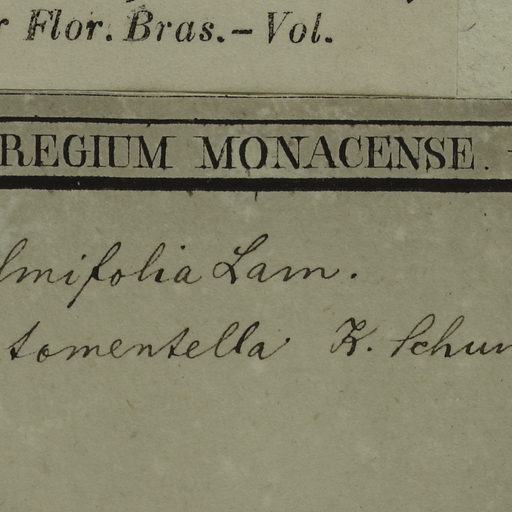 r Flor. Bras. – Vol.
REGIUM MONACENSE.
lmifolia Lam.
tomentella K. Schum